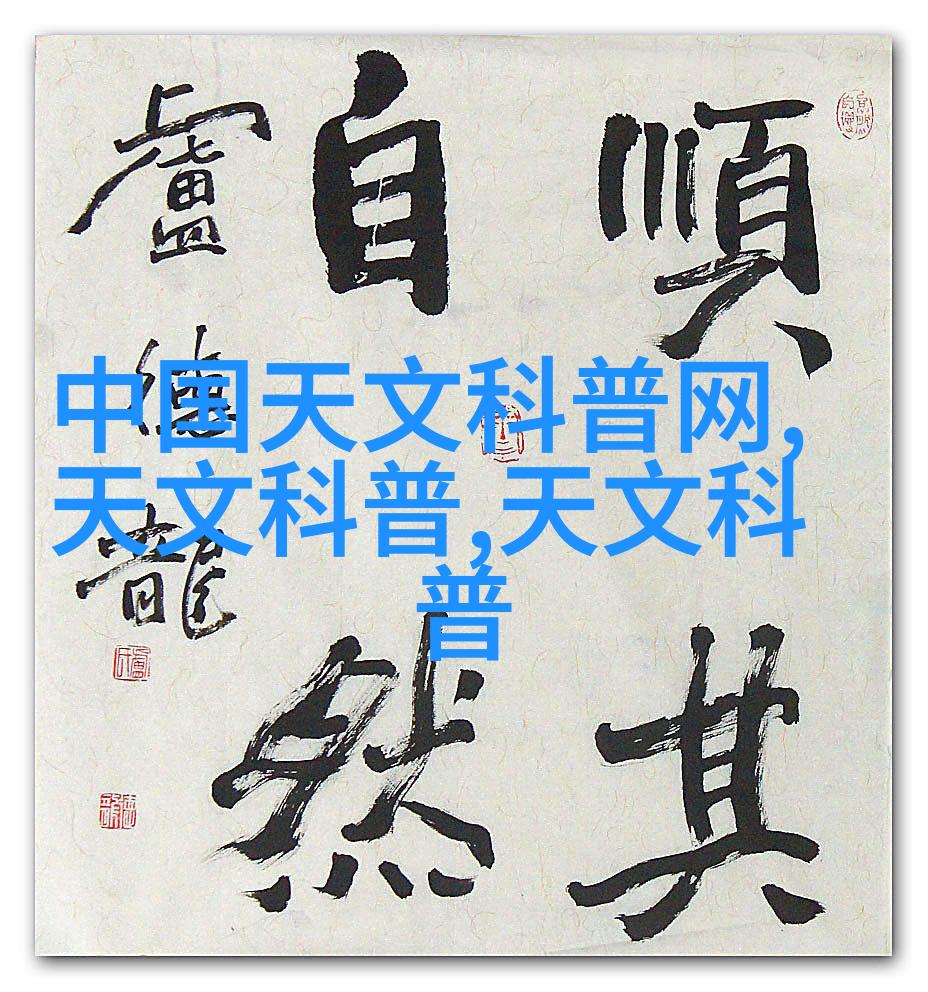 順其
自然
盧德龍
中国天文科普网,
天文科普,天文科
普